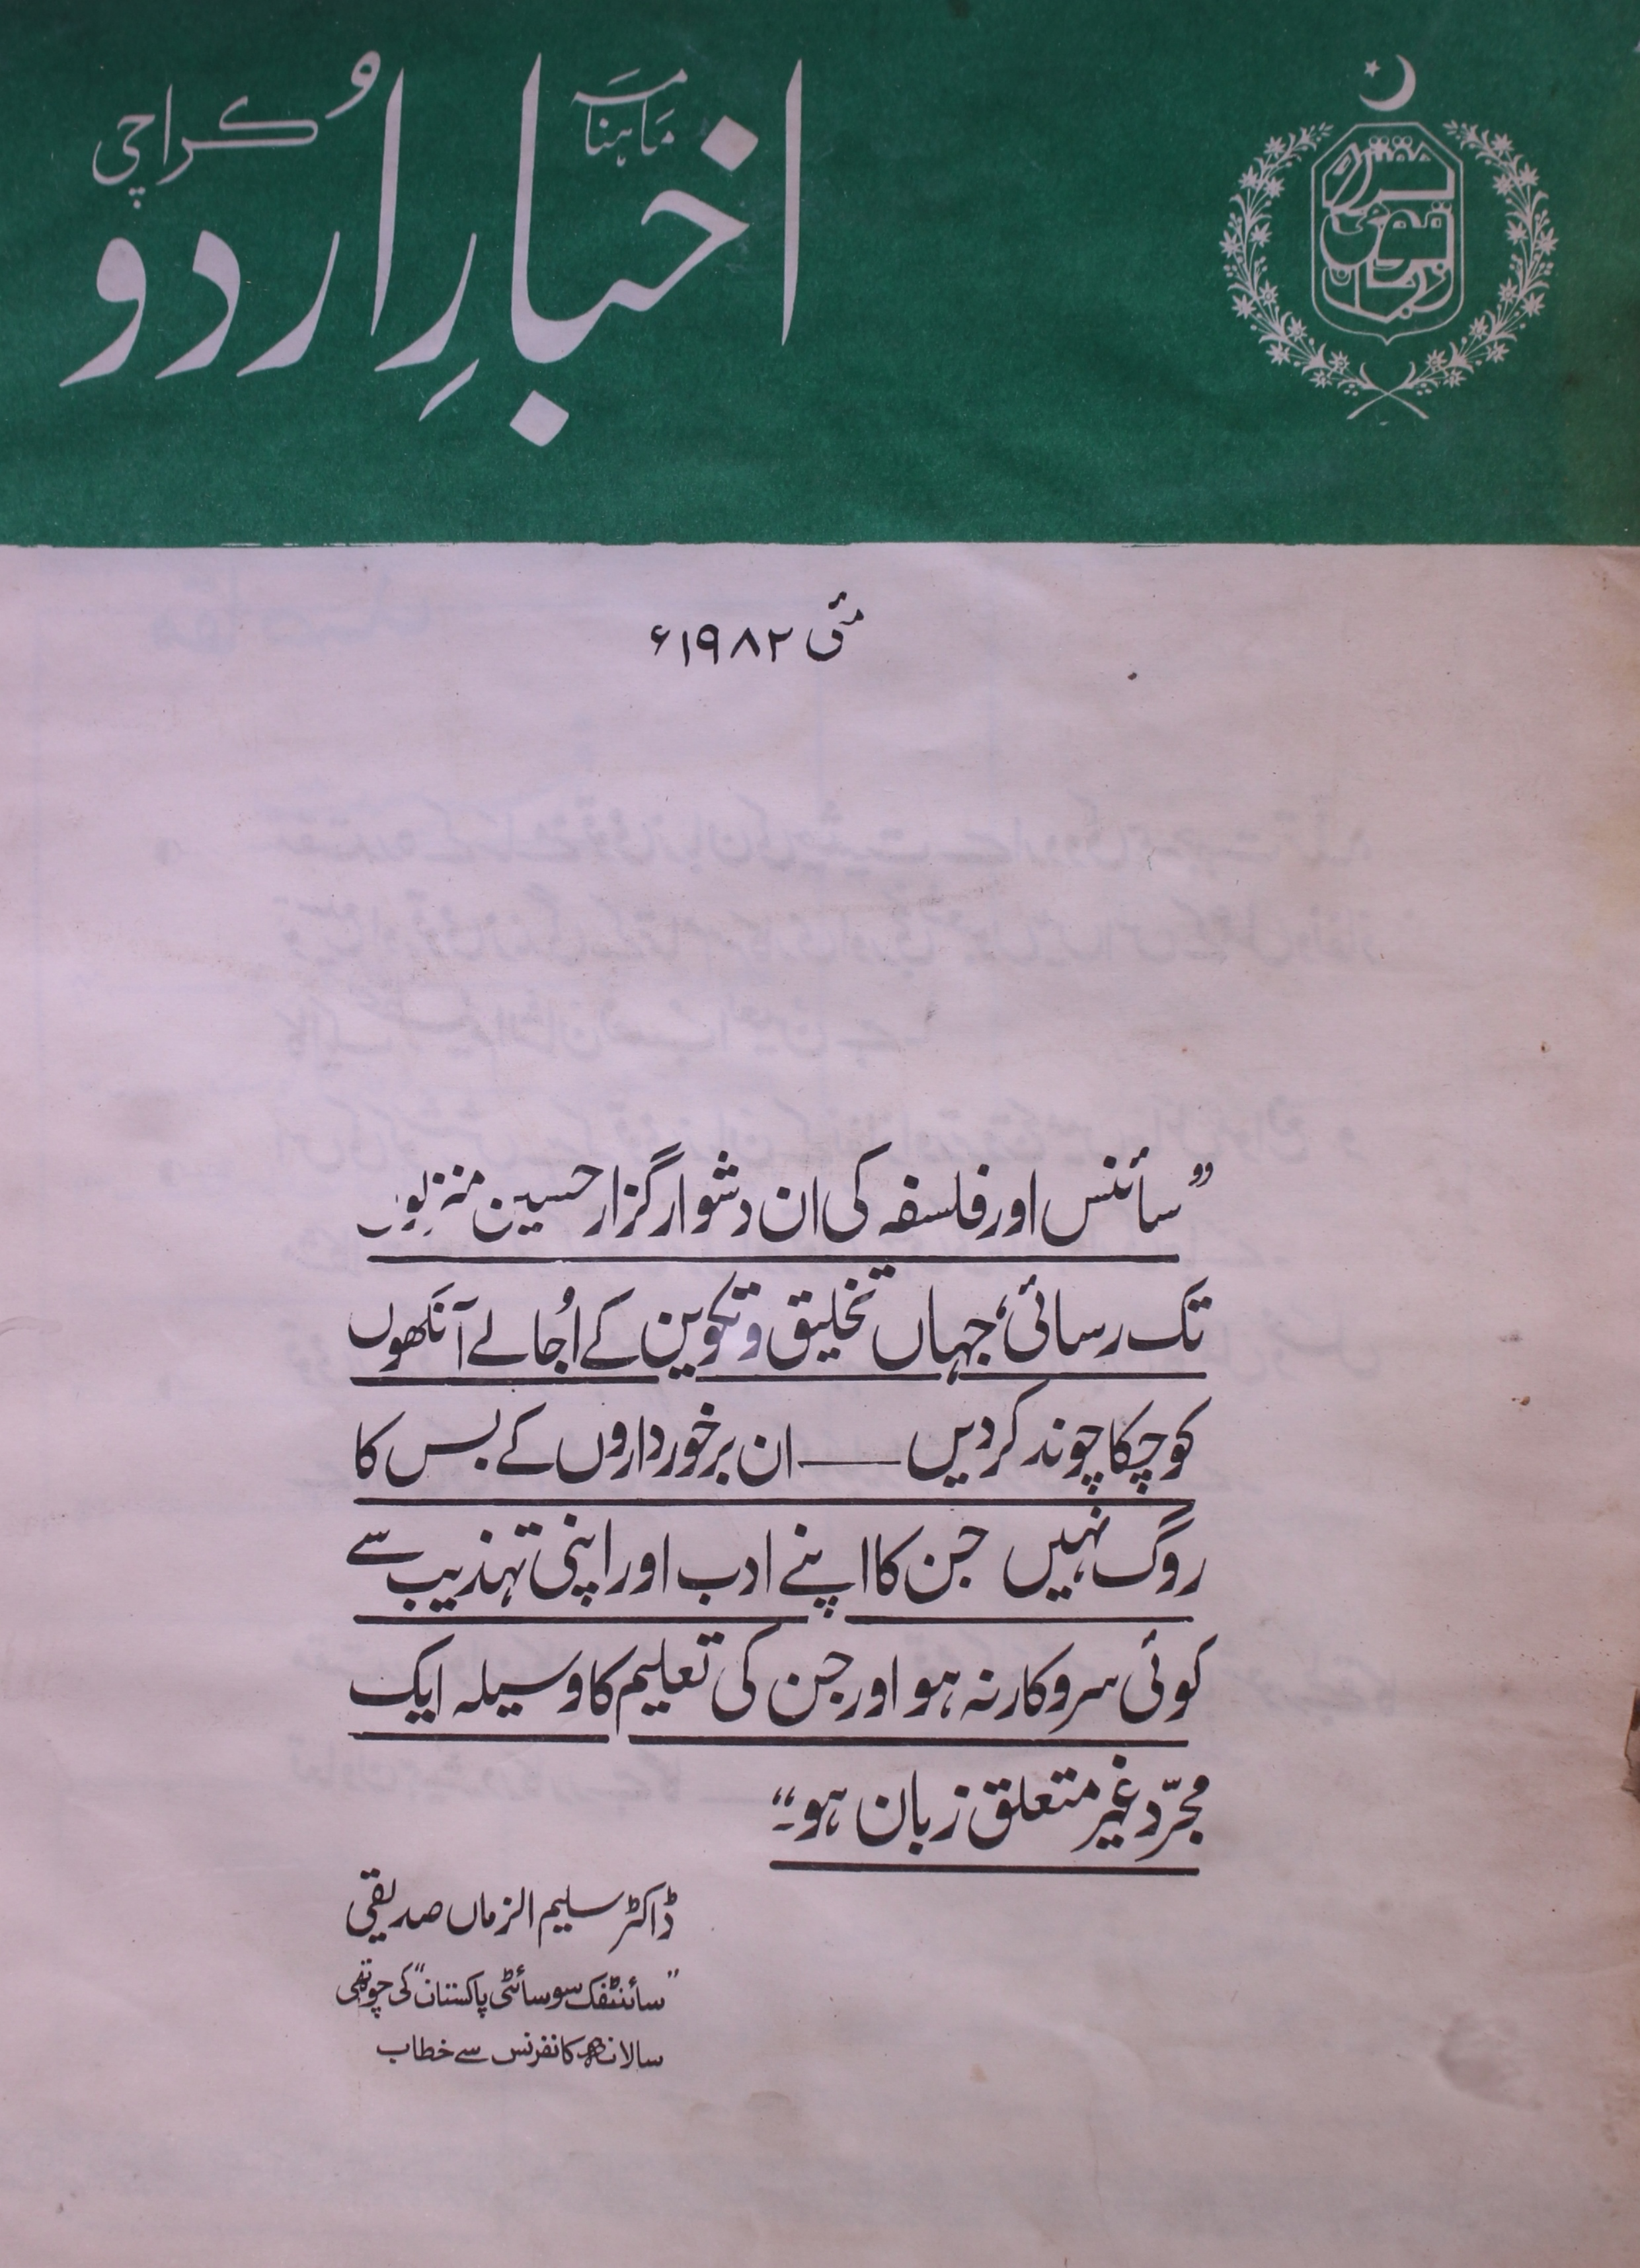 ماہنامہ
اخبارِ اُردو
کراچی
مقتدرہ قومی زبان
مئی ۱۹۸۲ء
”سائنس اور فلسفہ کی ان دشوار گزار حسین منزلوں
تک رسائی، جہاں تخلیق و تکوین کے اُجالے آنکھوں
کو چکا چوند کر دیں ــــــ ان برخورداروں کے بس کا
روگ نہیں جن کا اپنے ادب اور اپنی تہذیب سے
کوئی سروکار نہ ہو اور جن کی تعلیم کا وسیلہ ایک
مجرّد غیر متعلق زبان ہو۔“
ڈاکٹر سلیم الزماں صدیقی
”سائنٹفک سوسائٹی پاکستان“ کی چوتھی
سالانہ کانفرنس سے خطاب